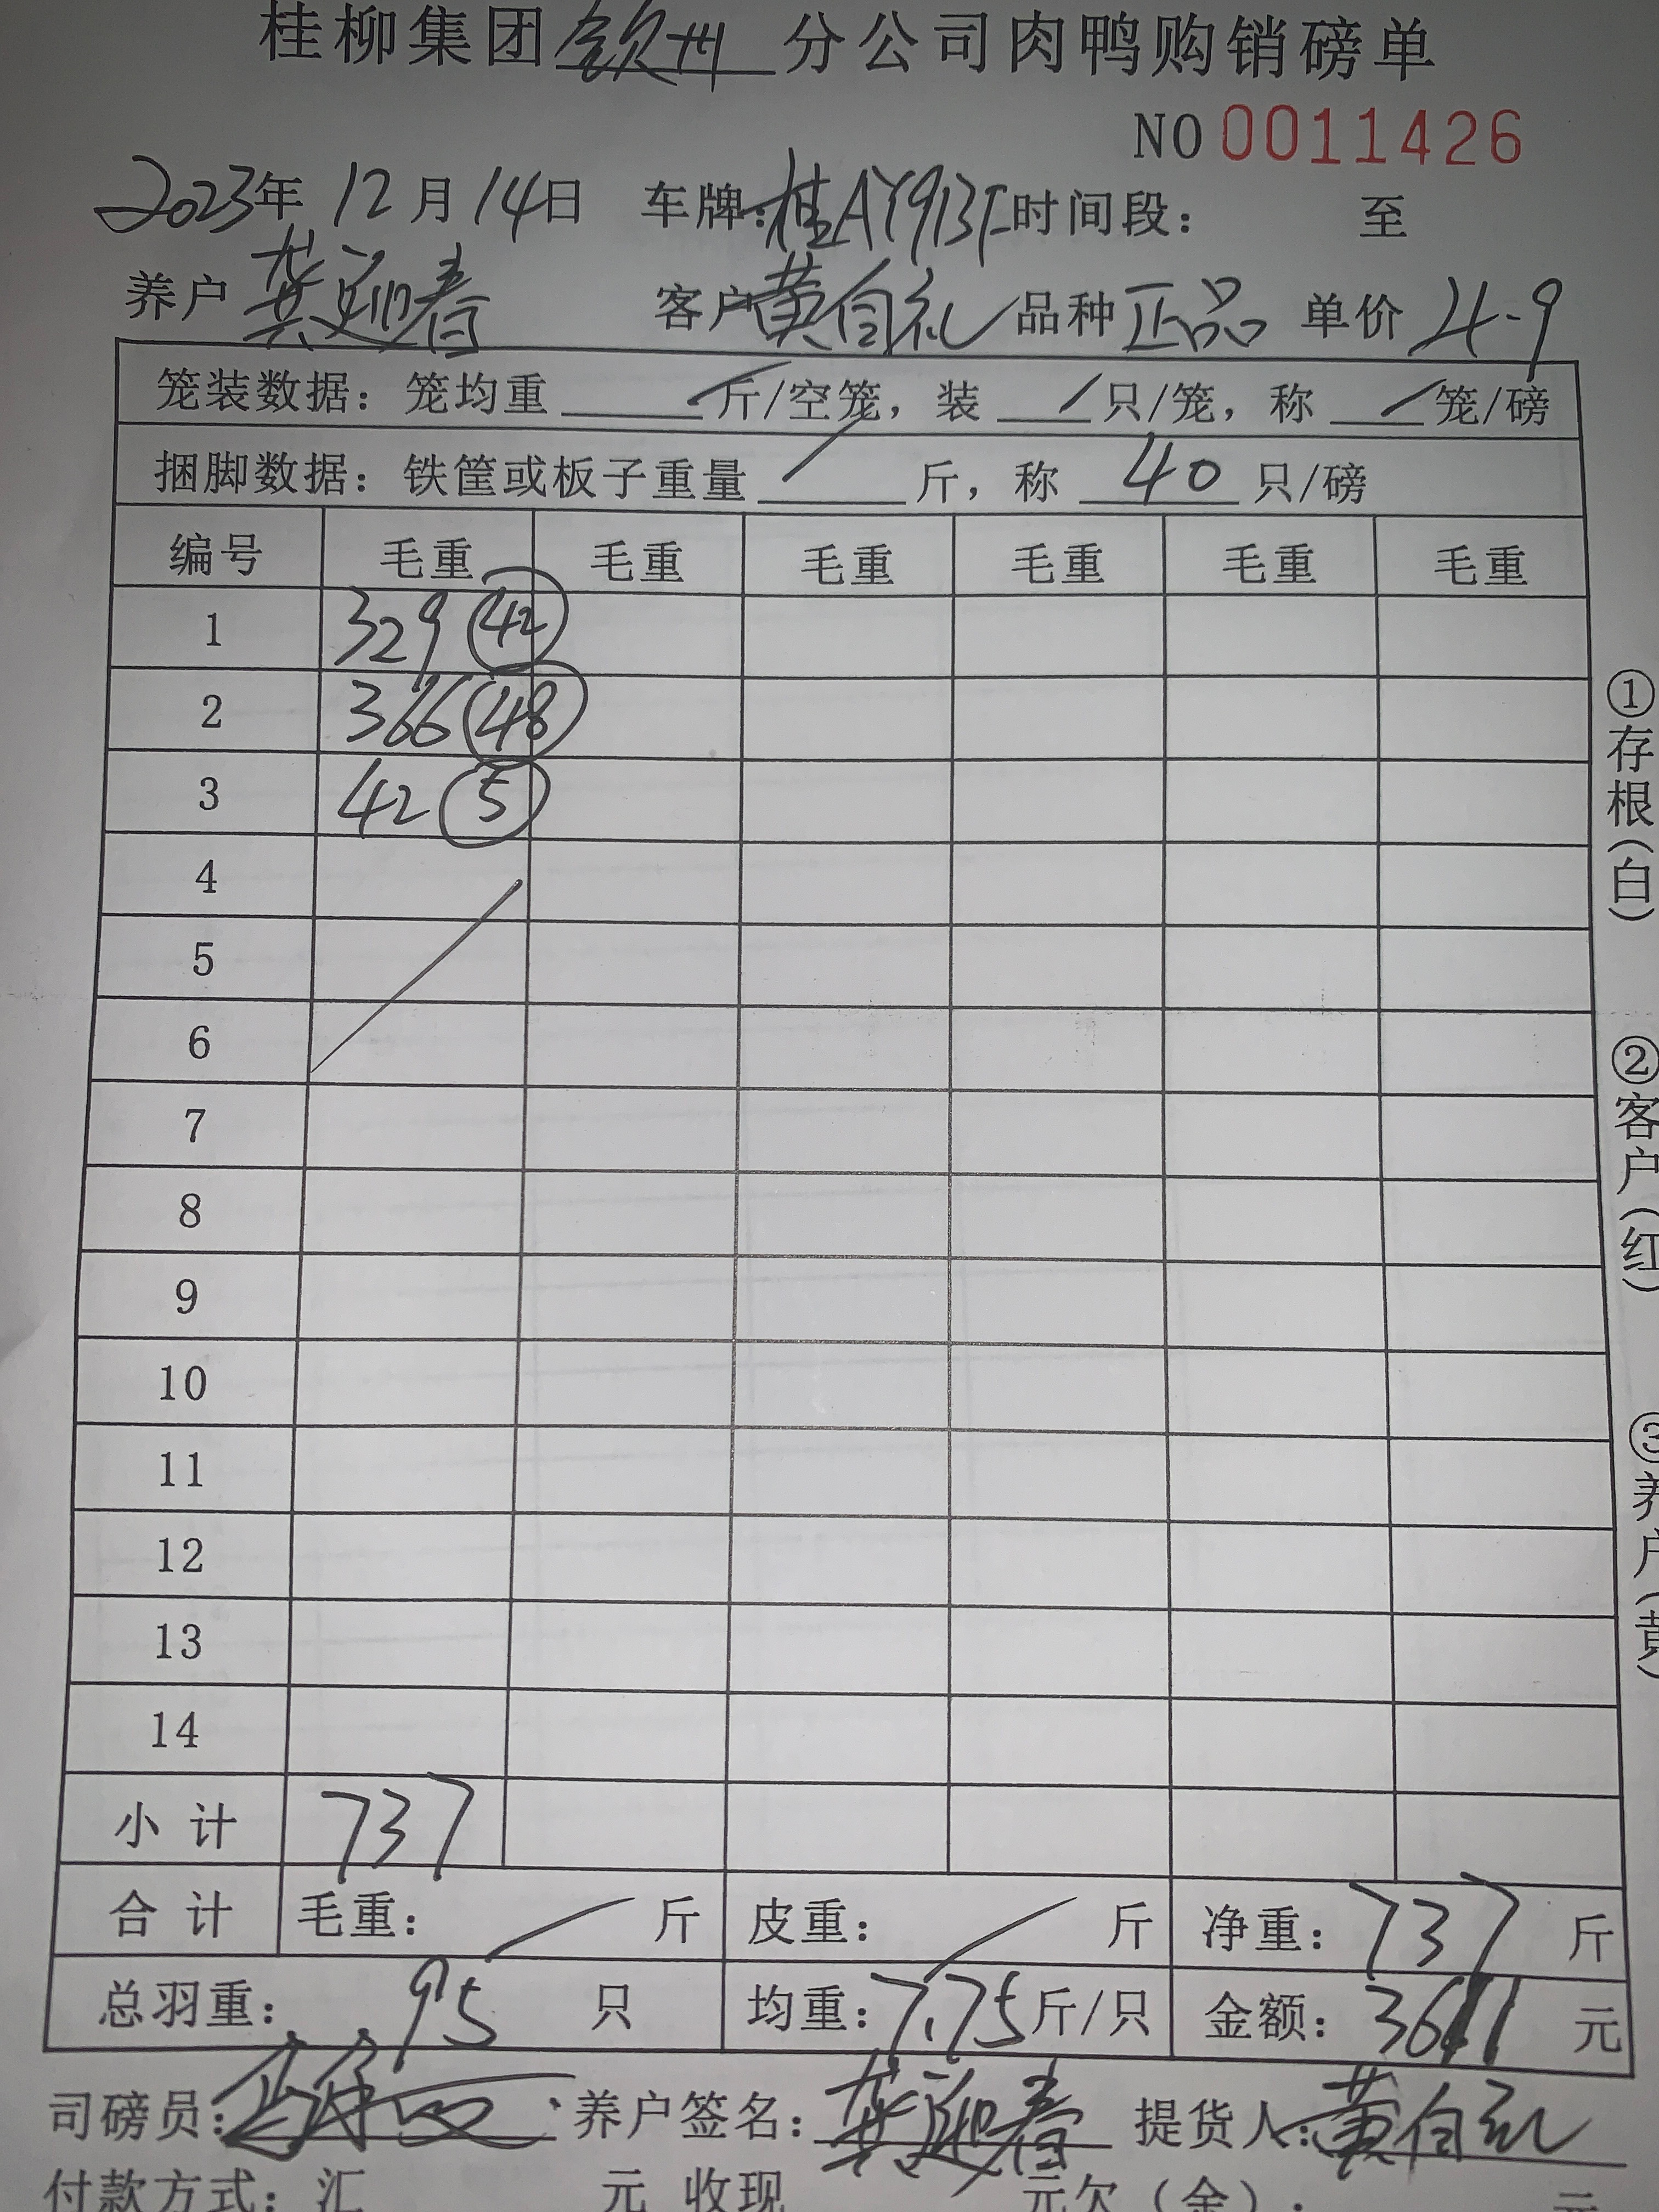 桂柳集团钦州分公司肉鸭购销磅单
NO 0011426
2023年 12月 14日 车牌:桂AY913F 时间段: 至
养户 龚迎春 客户 黄自礼 品种 正品 单价 4.9
笼装数据: 笼均重 / 斤/空笼, 装 / 只/笼, 称 / 笼/磅
捆脚数据: 铁筐或板子重量 / 斤, 称 40 只/磅
编号 毛重 毛重 毛重 毛重 毛重 毛重
1 329 (42)
2 366 (48)
3 42 (5)
4
5
6
7
8
9
10
11
12
13
14
小计 737
合计 毛重: / 斤 皮重: / 斤 净重: 737 斤
总羽重: 95 只 均重: 7.75 斤/只 金额: 3611 元
司磅员: 养户签名: 龚迎春 提货人: 黄自礼
付款方式: 汇 元 收现 元欠(金): 元
①存根(白)
②客户(红)
③养户(黄)